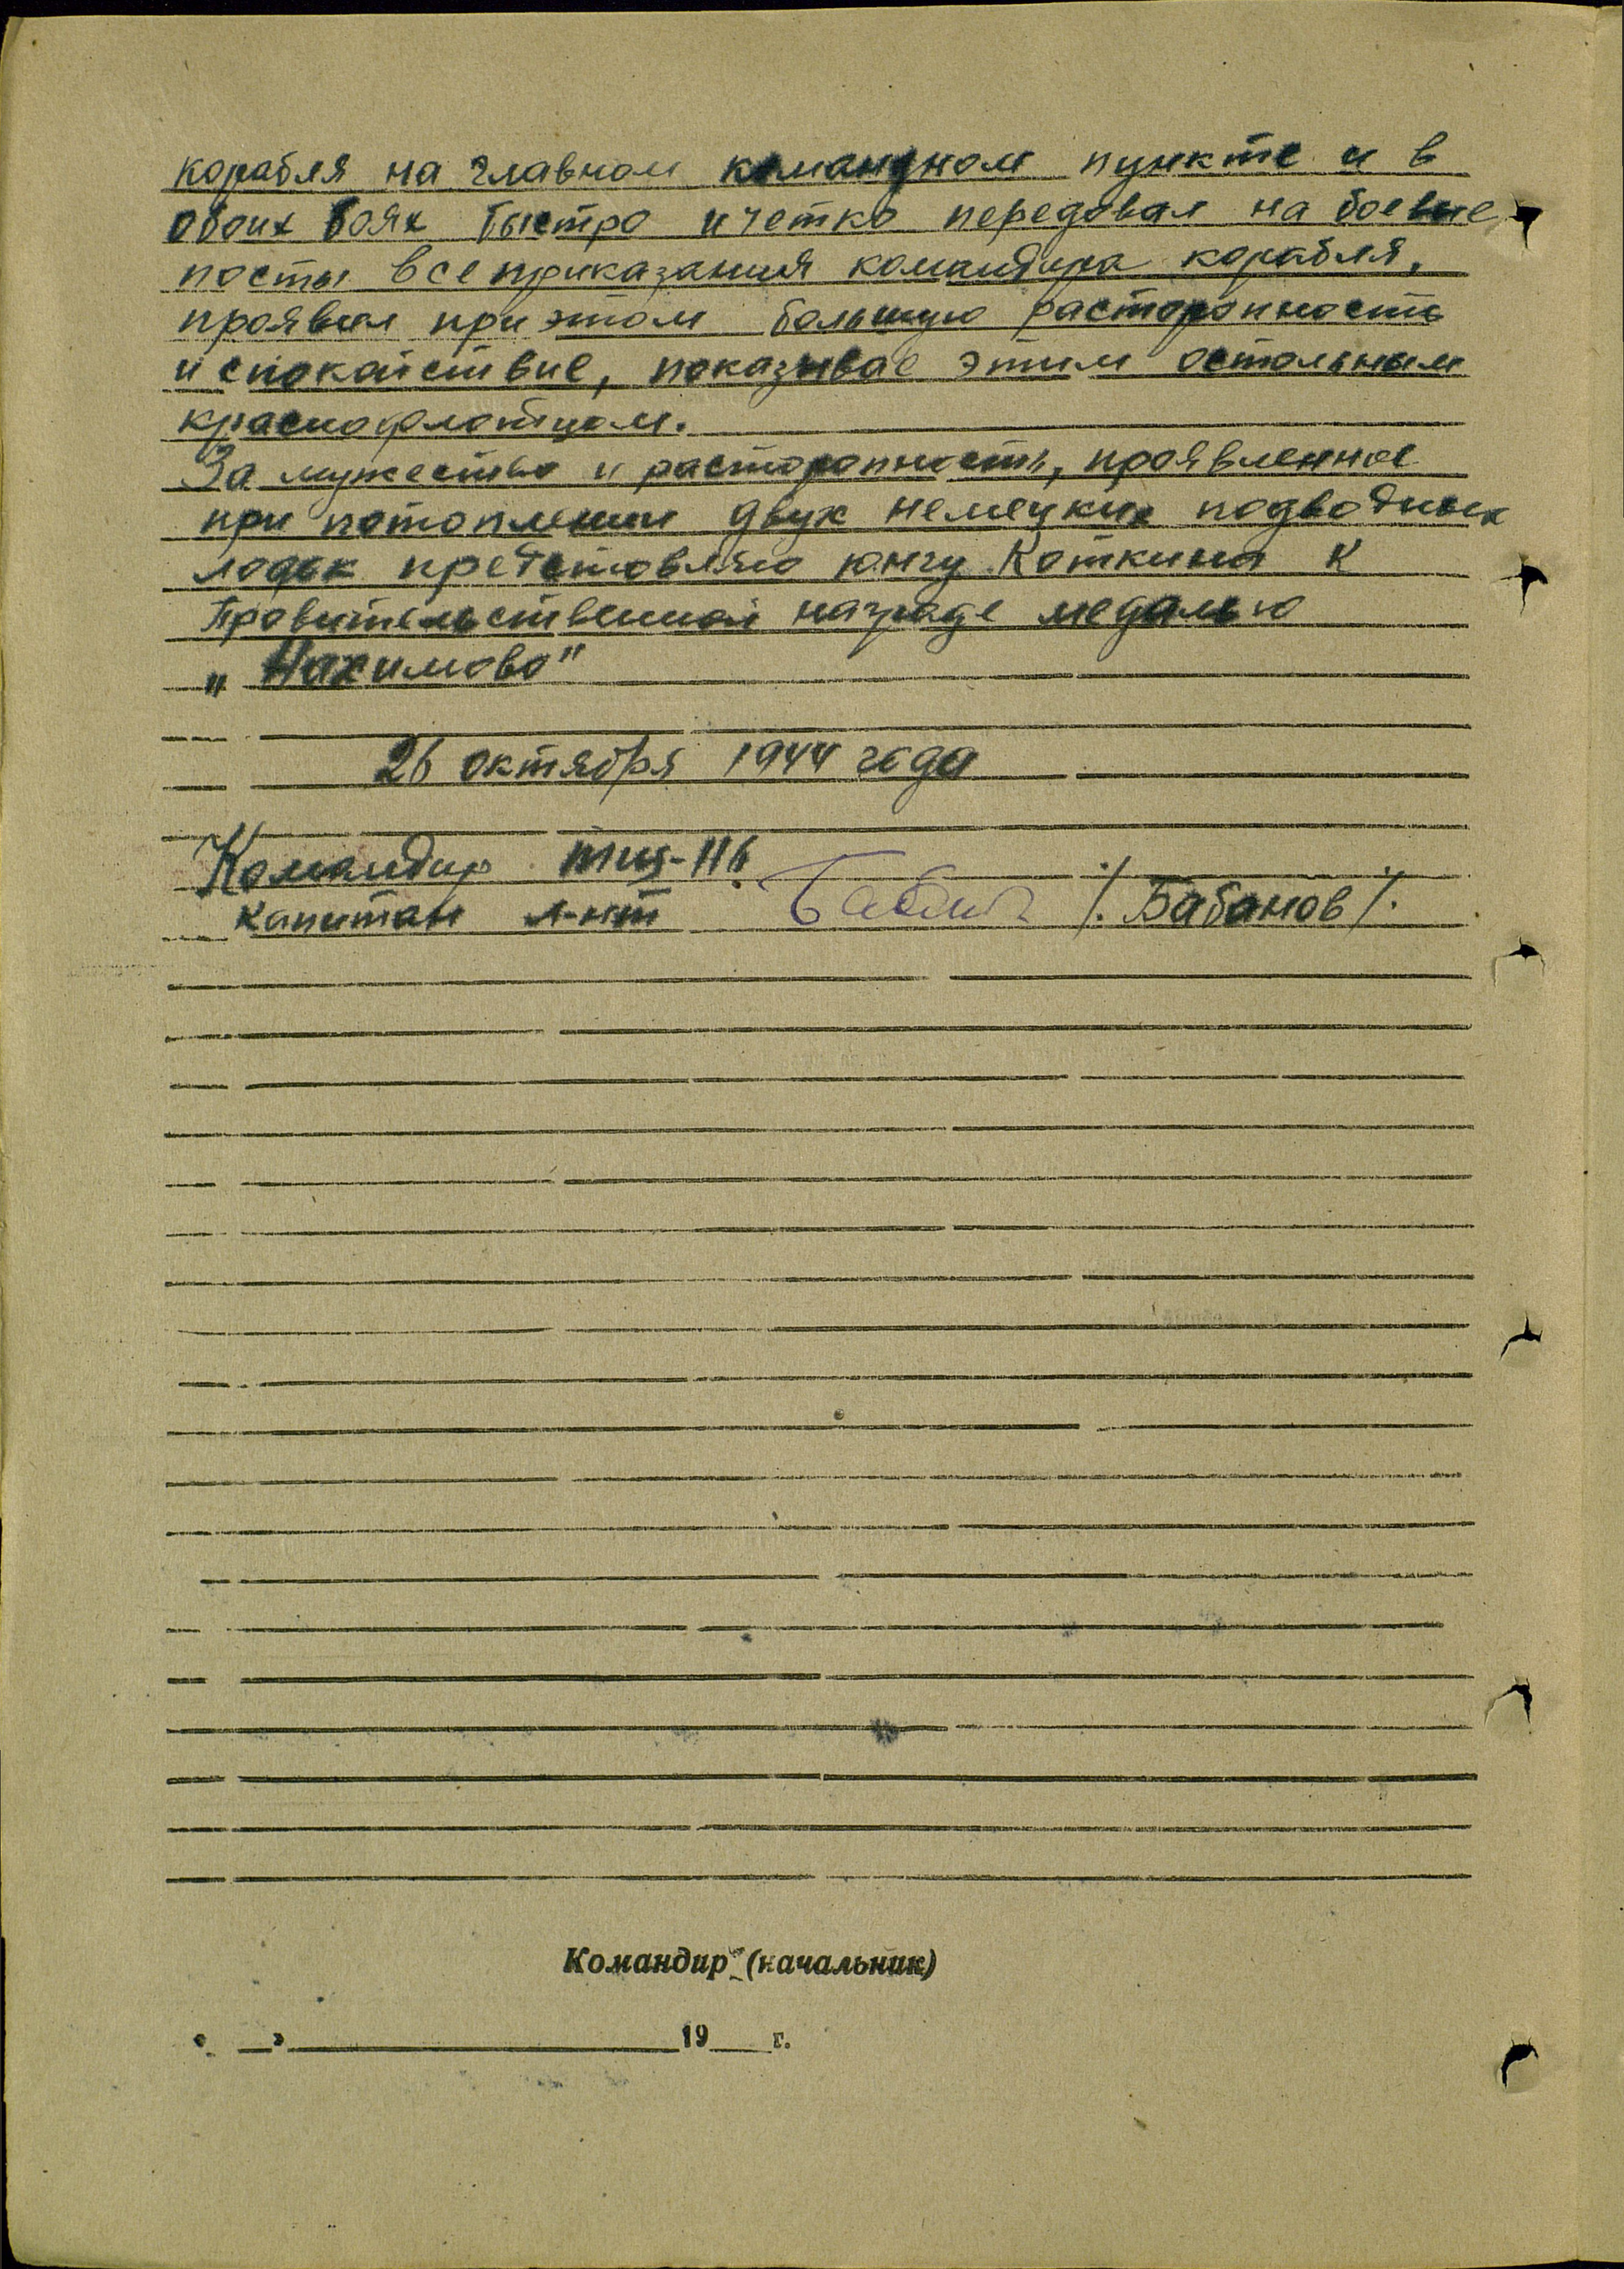 корабля на главном командном пункте и в
обоих боях быстро и четко передавал на боевые
посты все приказания командира корабля,
проявил при этом большую расторопность
и спокойствие, показывае этим остальным
краснофлотцам.
За мужество и расторопность, проявленное
при потоплении двух немецких подводных
лодок представляю юнгу Коткина к
Правительственной награде медалью
„Нахимова"
26 октября 1944 года
Командир тщ-116
капитан л-нт /. Бабанов /.
Командир (начальник)
« » 19 г.